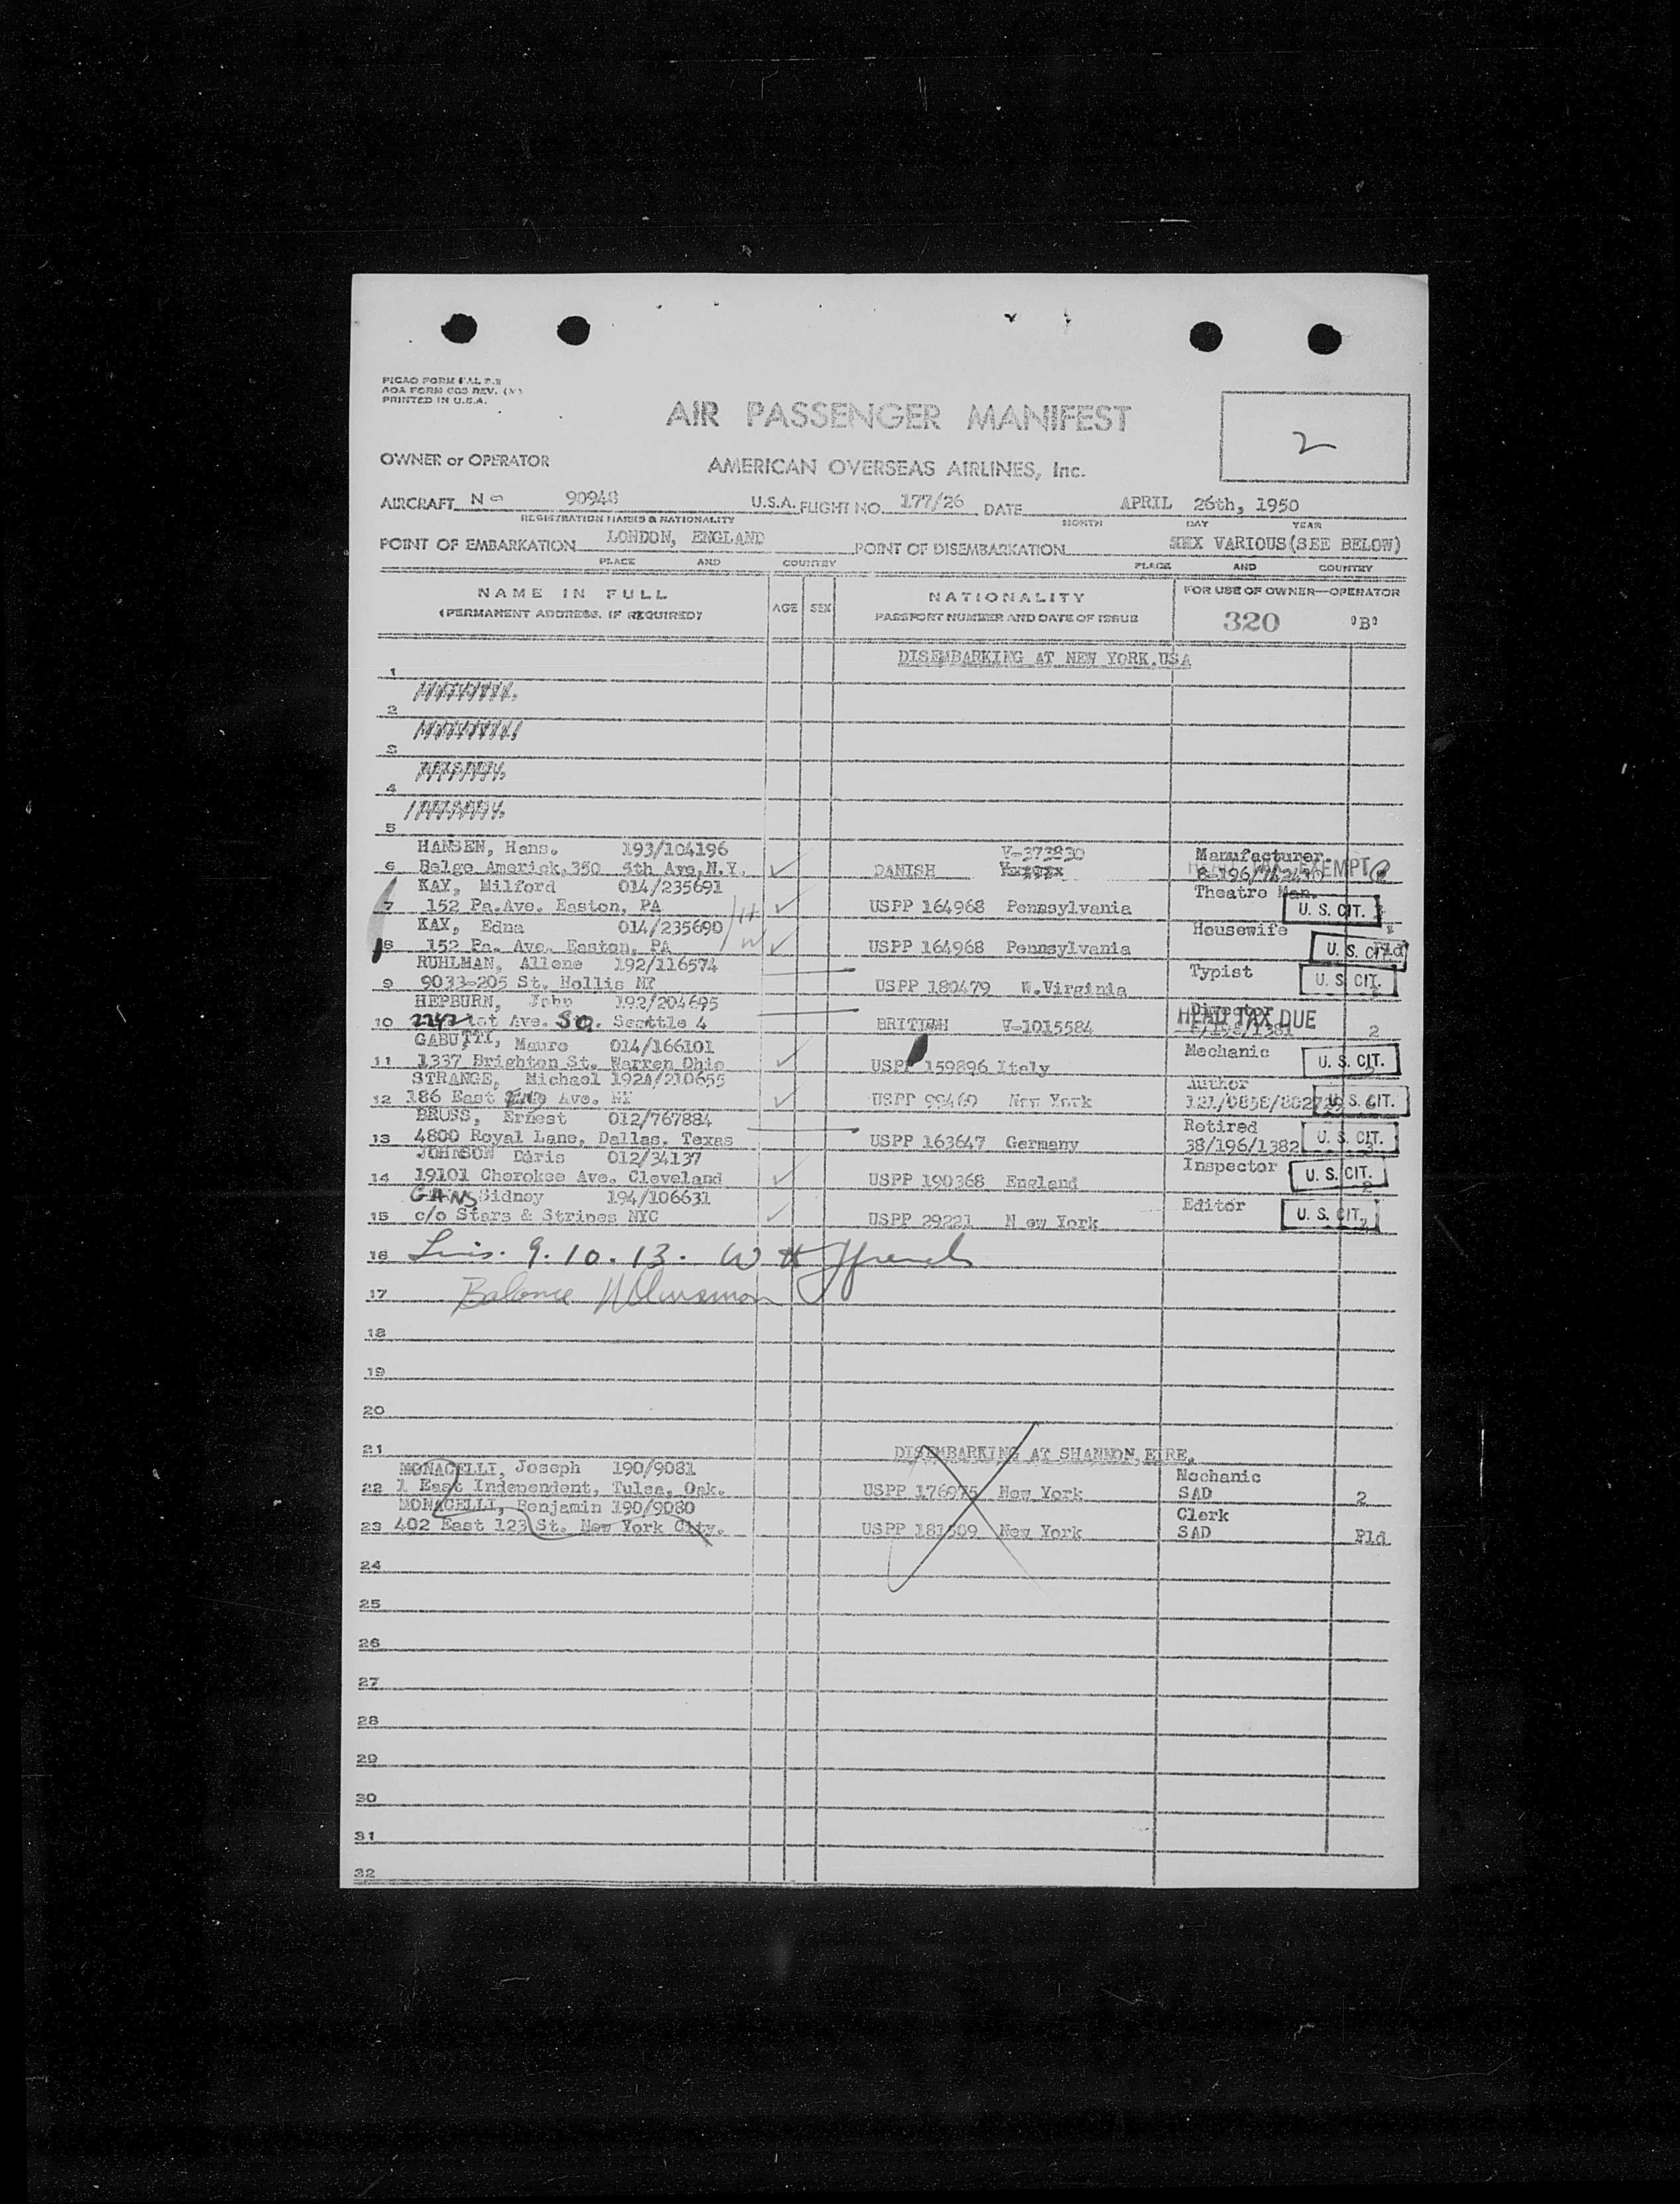 PICAO FORM FAL 2.2
AOA FORM 603 REV.
PRINTED IN U.S.A.
AIR PASSENGER MANIFEST
2
OWNER or OPERATOR AMERICAN OVERSEAS AIRLINES, Inc.
AIRCRAFT N - 90948 U.S.A. FLIGHT NO. 177/26 DATE APRIL 26th, 1950
REGISTRATION MARKS & NATIONALITY MONTH DAY YEAR
POINT OF EMBARKATION LONDON, ENGLAND POINT OF DISEMBARKATION VARIOUS(SEE BELOW)
PLACE AND COUNTRY PLACE AND COUNTRY
NAME IN FULL AGE SEX NATIONALITY FOR USE OF OWNER—OPERATOR
(PERMANENT ADDRESS, IF REQUIRED) PASSPORT NUMBER AND DATE OF ISSUE 320 "B"
DISEMBARKING AT NEW YORK,USA
1
2
3
4
5
HANSEN, Hans. 193/104196 V-373830 Manufacturer.
6 Belge Americk,350 5th Ave,N.Y. DANISH HEAD TAX EXEMPT
KAY, Milford 014/235691 Theatre Man.
7 152 Pa.Ave. Easton, PA USPP 164968 Pennsylvania U. S. CIT.
KAY, Edna 014/235690 H Housewife
8 152 Pa. Ave. Easton, PA W USPP 164968 Pennsylvania U. S. CIT.
RUHLMAN, Allene 192/116574 Typist
9 9033-205 St. Hollis NY USPP 180479 W.Virginia U. S. CIT.
HEPBURN, John 192/204695 Director
10 1st Ave. So. Seattle 4 BRITISH V-1015584 HEAD TAX DUE 2
GABUTTI, Mauro 014/166101 Mechanic
11 1337 Brighton St. Warren Ohio USPP 159896 Italy U. S. CIT.
STRANGE, Michael 192A/210655 Author
12 186 East End Ave. NY USPP 99460 New York U. S. CIT.
BRUSS, Ernest 012/767884 Retired
13 4800 Royal Lane, Dallas, Texas USPP 163647 Germany 38/196/1382 U. S. CIT.
JOHNSON Doris 012/34137 Inspector
14 19101 Cherokee Ave. Cleveland USPP 190368 England U. S. CIT.
GANS Sidney 194/106631 Editor
15 c/o Stars & Stripes NYC USPP 29221 New York U. S. CIT.
16 9.10.13. W H
17 Balance
18
19
20
21 DISEMBARKING AT SHANNON,EIRE.
MONACELLI, Joseph 190/9081 Mechanic
22 1 East Independent, Tulsa, Oak. USPP 176975 New York SAD 2
MONACELLI, Benjamin 190/9080 Clerk
23 402 East 123 St. New York City. USPP 181509 New York SAD Pld
24
25
26
27
28
29
30
31
32